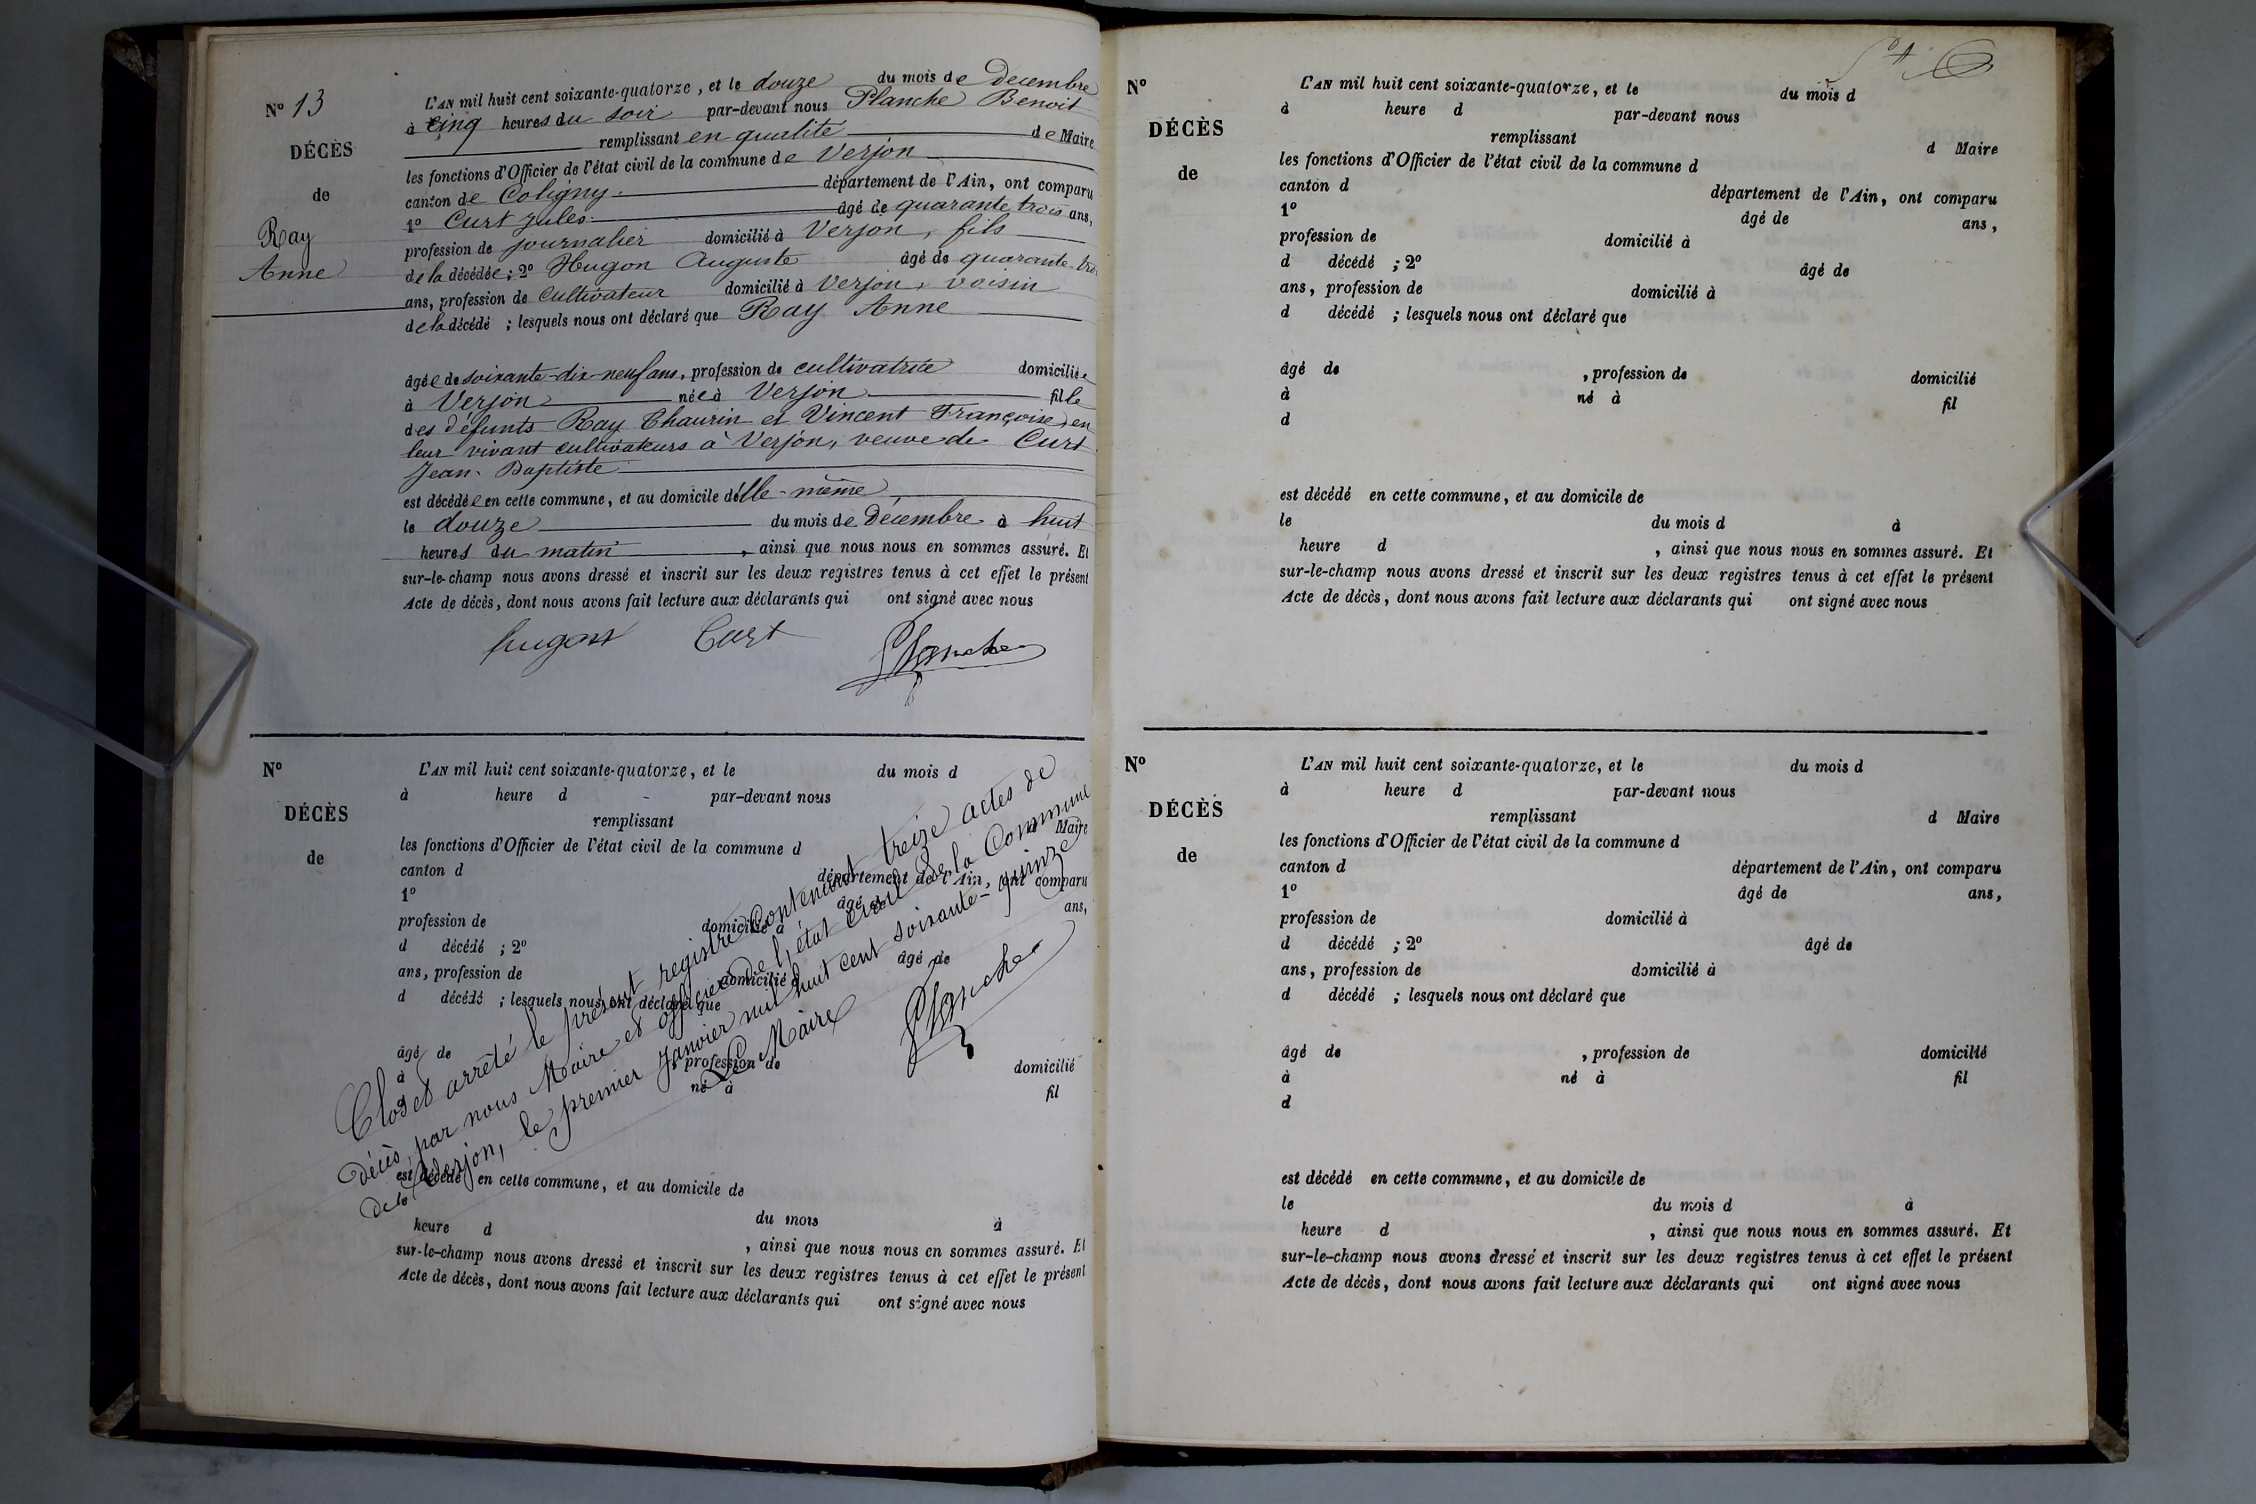 N° 13
DÉCÈS
de
Ray
Anne
L'AN mil huit cent soixante-quatorze, et le douze du mois de Décembre
à cinq heures du soir par-devant nous Planche Benoit
remplissant en qualité de Maire
les fonctions d'Officier de l'état civil de la commune de Verjon
canton de Coligny département de l'Ain, ont comparu
1° Curt Jules âgé de quarante trois ans,
profession de journalier domicilié à Verjon, fils
de la décédée ; 2° Hugon Auguste âgé de quarante-
ans, profession de cultivateur domicilié à Verjon, voisin
de la décédé ; lesquels nous ont déclaré que Ray Anne
âgée de soixante-dix-neuf ans, profession de cultivatrice domiciliée
à Verjon née à Verjon fille
des défunts Ray Thaurin et Vincent Françoise, en
leur vivant cultivateurs à Verjon, veuve de Curt
Jean-Baptiste
est décédée en cette commune, et au domicile d'elle-même,
le douze du mois de Décembre à huit
heures du matin, ainsi que nous nous en sommes assuré. Et
sur-le-champ nous avons dressé et inscrit sur les deux registres tenus à cet effet le présent
Acte de décès, dont nous avons fait lecture aux déclarants qui ont signé avec nous
hugon Curt Planche
N°
DÉCÈS
de
L'AN mil huit cent soixante-quatorze, et le du mois d
à heure d par-devant nous
remplissant d Maire
les fonctions d'Officier de l'état civil de la commune d
canton d département de l'Ain, ont comparu
1° âgé de ans,
profession de domicilié à
d décédé ; 2° âgé de
ans, profession de domicilié à
d décédé ; lesquels nous ont déclaré que
âgé de , profession de domicilié
à né à fil
d
est décédé en cette commune, et au domicile de
le du mois à
heure d , ainsi que nous nous en sommes assuré. Et
sur-le-champ nous avons dressé et inscrit sur les deux registres tenus à cet effet le présent
Acte de décès, dont nous avons fait lecture aux déclarants qui ont signé avec nous
Clos et arrêté le présent registre contenant treize actes de
décès, par nous Maire et officier de l'état civil de la Commune
de Verjon, le premier Janvier mil huit cent soixante-quinze
Le Maire
Planche
N°
DÉCÈS
de
L'AN mil huit cent soixante-quatorze, et le du mois d
à heure d par-devant nous
remplissant d Maire
les fonctions d'Officier de l'état civil de la commune d
canton d département de l'Ain, ont comparu
1° âgé de ans,
profession de domicilié à
d décédé ; 2° âgé de
ans, profession de domicilié à
d décédé ; lesquels nous ont déclaré que
âgé de , profession de domicilié
à né à fil
d
est décédé en cette commune, et au domicile de
le du mois d à
heure d , ainsi que nous nous en sommes assuré. Et
sur-le-champ nous avons dressé et inscrit sur les deux registres tenus à cet effet le présent
Acte de décès, dont nous avons fait lecture aux déclarants qui ont signé avec nous
N°
DÉCÈS
de
L'AN mil huit cent soixante-quatorze, et le du mois d
à heure d par-devant nous
remplissant d Maire
les fonctions d'Officier de l'état civil de la commune d
canton d département de l'Ain, ont comparu
1° âgé de ans,
profession de domicilié à
d décédé ; 2° âgé de
ans, profession de domicilié à
d décédé ; lesquels nous ont déclaré que
âgé de , profession de domicilié
à né à fil
d
est décédé en cette commune, et au domicile de
le du mois d à
heure d , ainsi que nous nous en sommes assuré. Et
sur-le-champ nous avons dressé et inscrit sur les deux registres tenus à cet effet le présent
Acte de décès, dont nous avons fait lecture aux déclarants qui ont signé avec nous